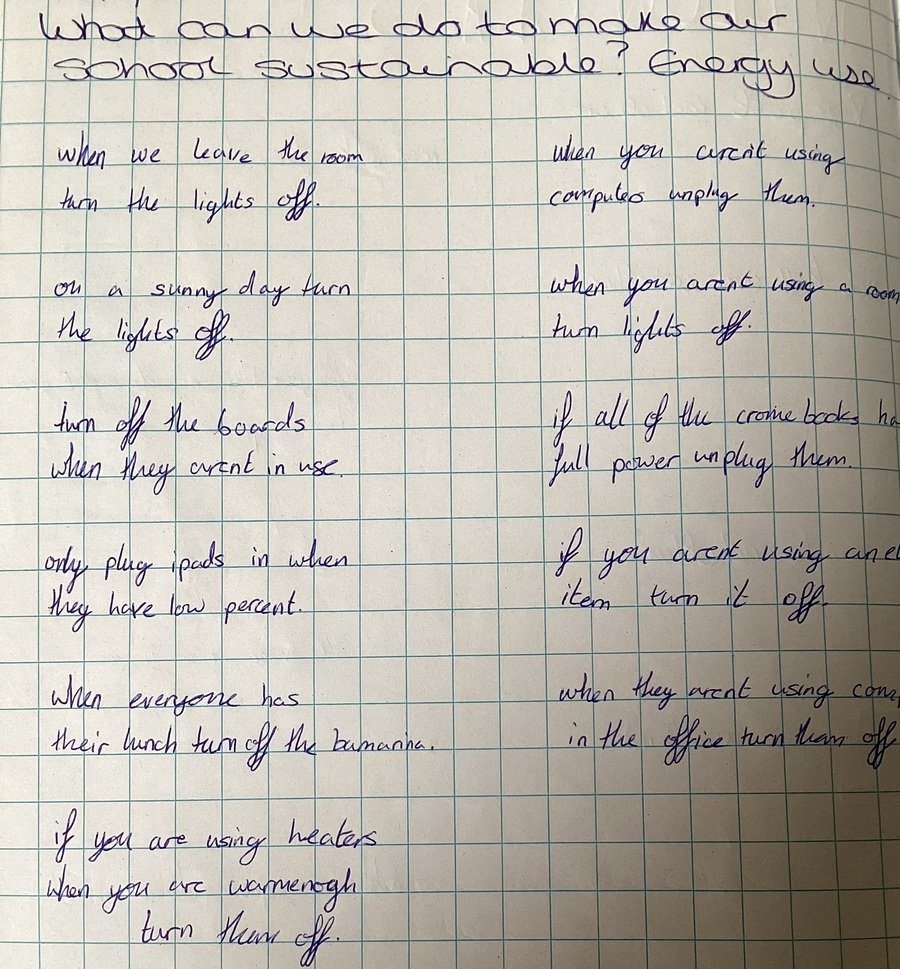 What can we do to make our
school sustainable? Energy use
when we leave the room
turn the lights off.
on a sunny day turn
the lights off.
turn off the boards
when they arent in use
only plug ipads in when
they have low percent.
when everyone has
their lunch turn off the bamanha.
if you are using heaters
when you are warmenogh
turn them off.
when you aren't using
computers unplug them.
when you arent using a room
turn lights off.
if all of the crome books ha
full power unplug them.
if you arent using an el
item turn it off.
when they arent using com
in the office turn them off